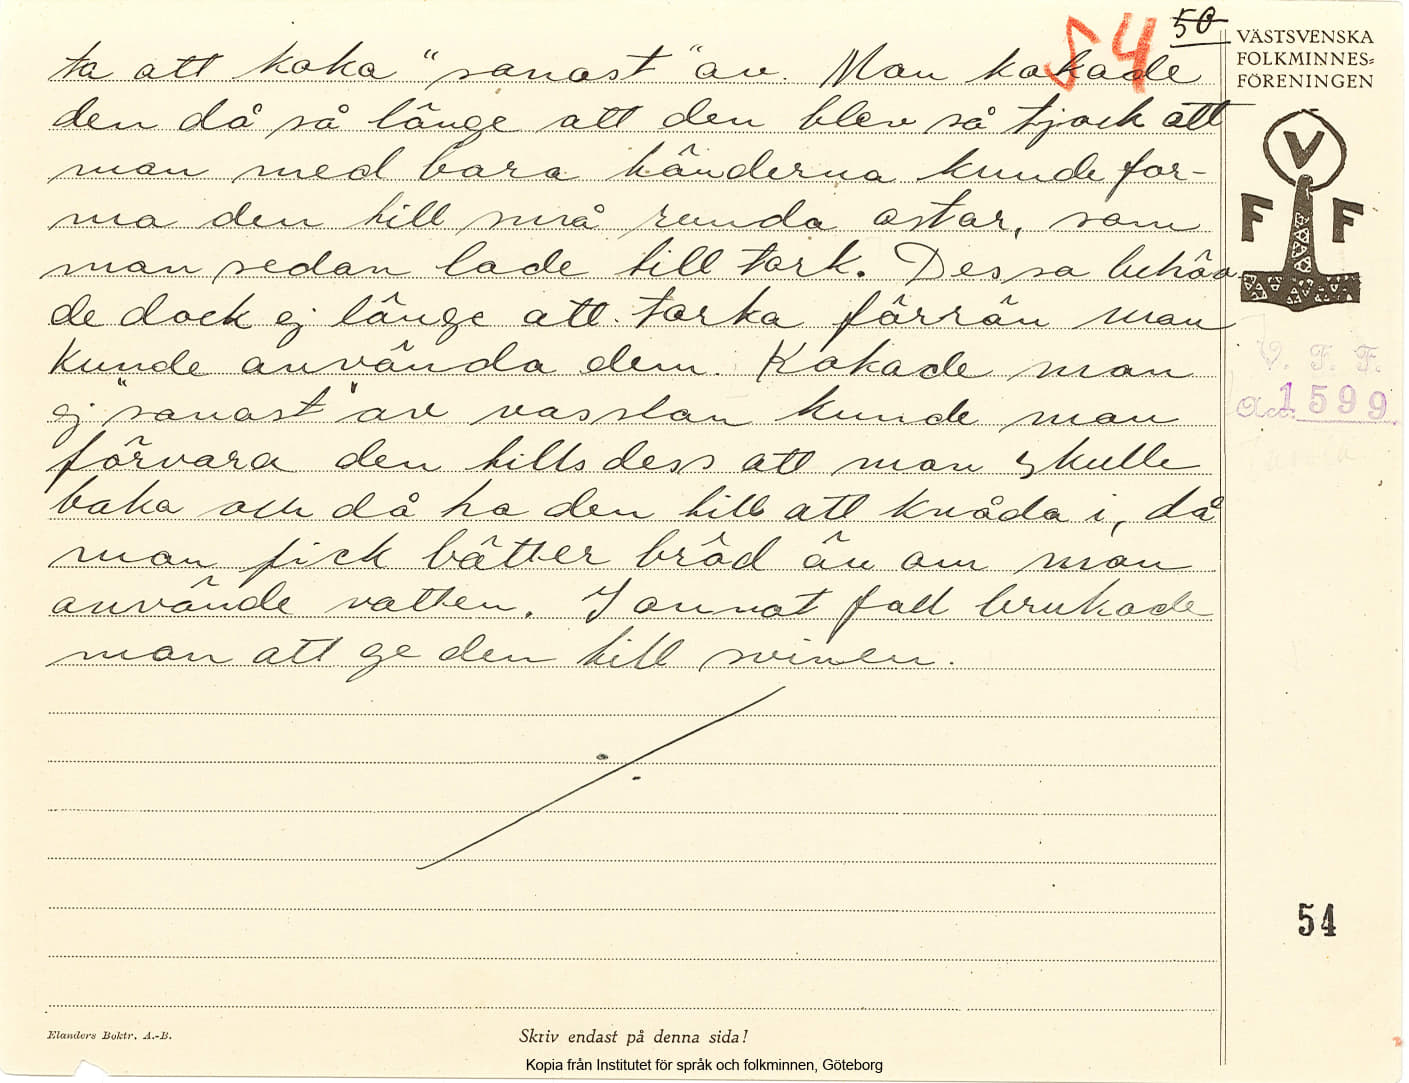 50
54
VÄSTSVENSKA
FOLKMINNES=
FÖRENINGEN
V
F F
ta att koka "sanost" av. Man kokade
den då så länge att den blev så tjock att
man med bara händerna kunde for-
ma den till små runda ostar, som
man sedan lade till tork. Dessa behöv
de dock ej länge att torka förrän man
kunde använda dem. Kokade man
ej "sanost" av vasslan kunde man
förvara den tills dess att man skulle
baka och då ha den till att knåda i, då
man fick bätter bröd än om man
använde vatten. I annat fall brukade
man att ge den till svinen.
V. F. F.
Acc. 1599
54
Elanders Boktr. A.-B.
Skriv endast på denna sida!
Kopia från Institutet för språk och folkminnen, Göteborg